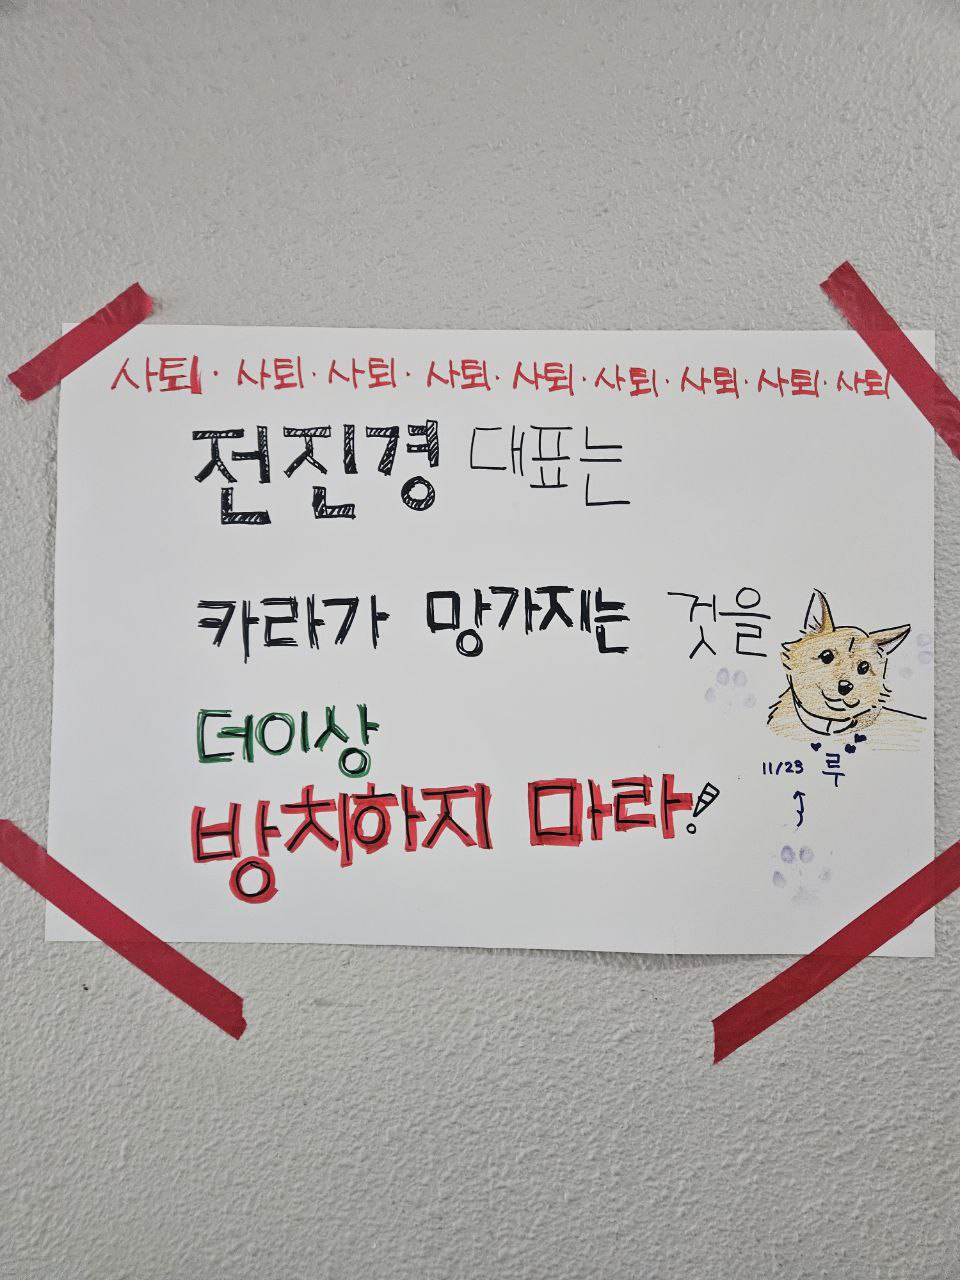 사퇴·사퇴·사퇴·사퇴·사퇴·사퇴·사퇴·사퇴·사퇴
전진경 대표는
카라가 망가지는 것을
더이상
방치하지 마라!
11/23 루